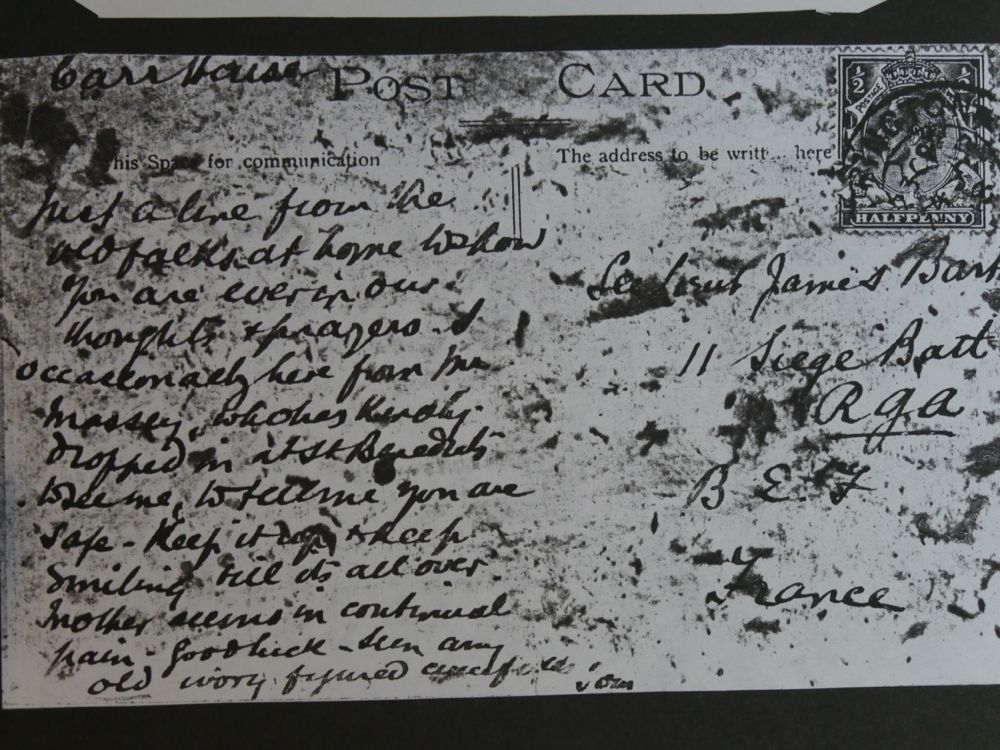 Carr House
POST CARD
his Space for communication
The address to be writt... here
1/2
POSTAGE
HALFPENNY
Just a line from the
old folks at home to show
you are ever in our
thoughts & prayers. I
occasionally here from Mr
Massey, who has kindly
dropped in at St Benedicts
to see me, to tell me you are
safe - Keep it up & keep
smiling till its all over
Mother seems in continual
pain - Good luck - seen any
old ivory figured
Sec Lieut James Bar
11 Siege Batt
RGA
B. E. F
France